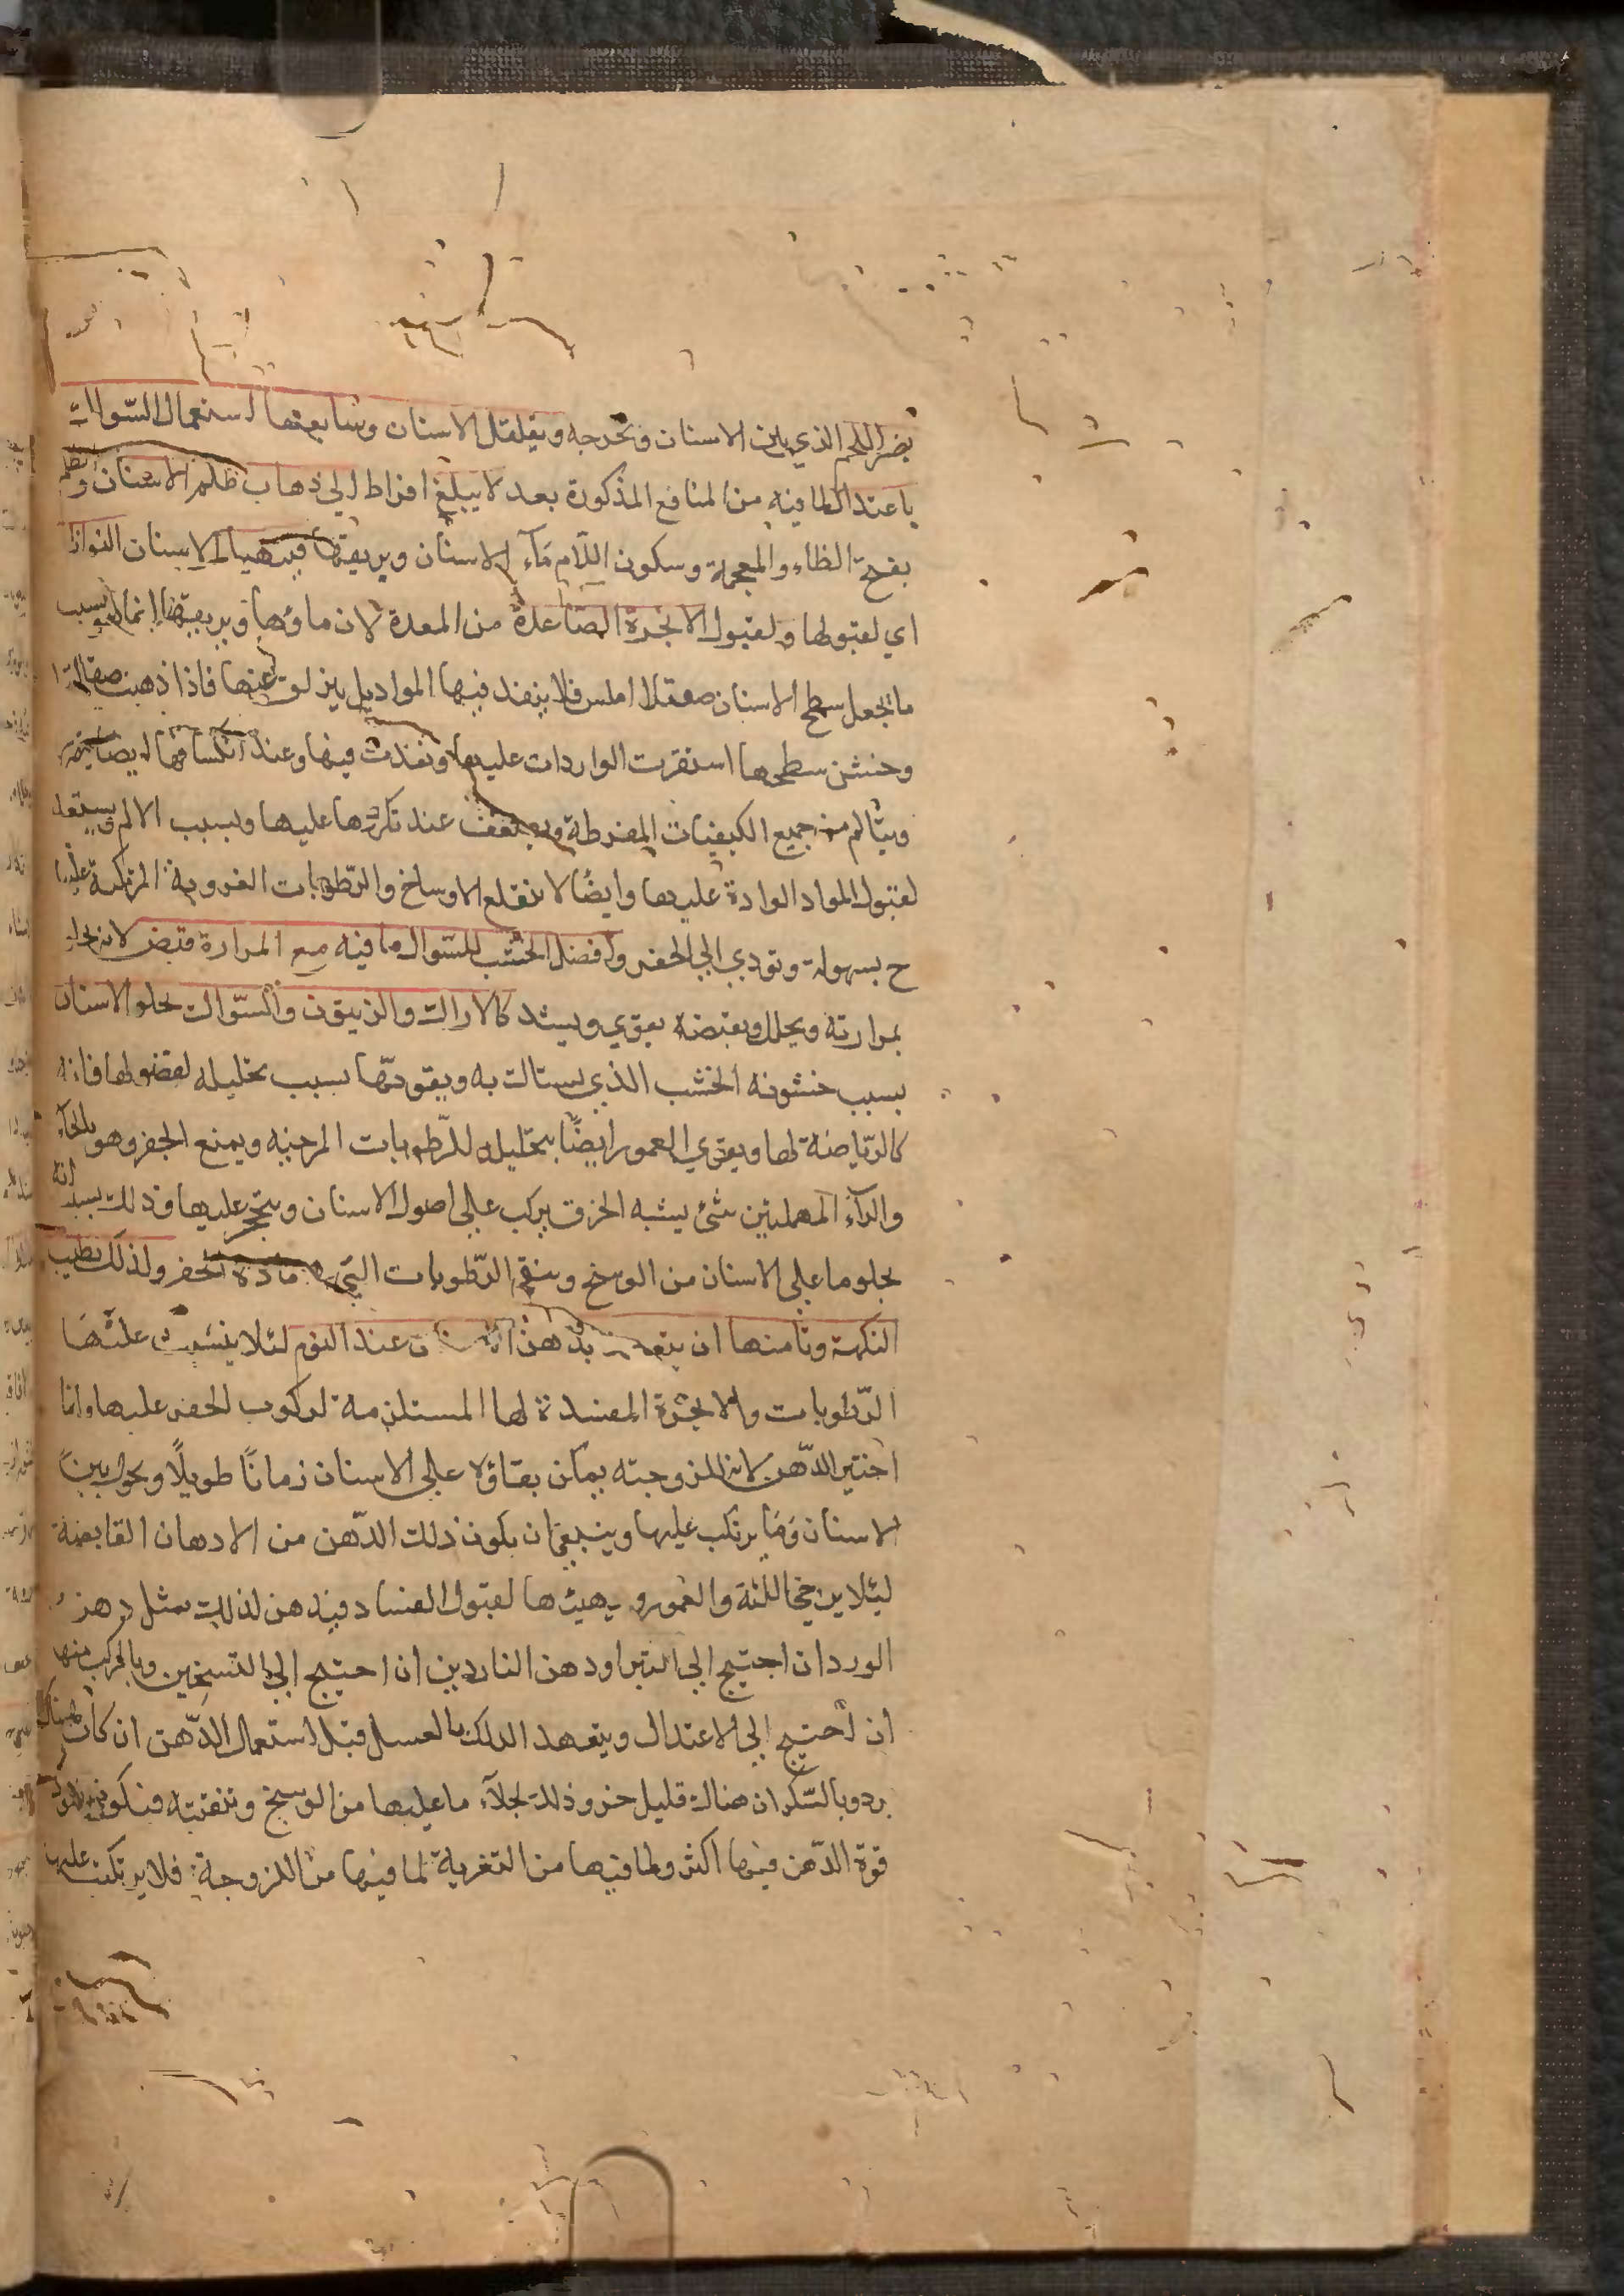 يضر اللحم الذي بين الاسنان ويخرجه ويقلقل الاسنان وسابعها استعمال السواك
باعتدال لما فيه من المنافع المذكورة بعد لا يبلغ افراط الي ذهاب ظلم الاسنان والظلم
بفتح الظاء والمعجمة وسكون اللام ماء الاسنان وبريقها فيتهيا الاسنان النوازل
اي لقبولها ولقبول الابخرة الصاعدة من المعدة لان ماؤها وبريقها انما هو بسبب
ما يجعل سطح الاسنان صقلا املس فلا ينفذ فيها المواد بل ينزلق عنها فاذا ذهبت صقالتها
وخشن سطحها استقرت الواردات عليها ونفذت فيها وعند انكسافها ايضا
ويتالم من جميع الكيفيات المفرطة ويضعف عند تكررها عليها وبسبب الالم ويستعد
لقبول المواد الواردة عليها وايضًا لا تنقلع الاوساخ والرّطوبات الغروية المرتكبة عليها
ح بسهولة وتودي الي الحفر وافضل الخشب للسّواك ما فيه مع المرارة قبض لانه يجلو
بمرارته ويحلل وبقبضه يقوي ويشد كالاراك والزيتون والسّواك يجلو الاسنان
بسبب خشونه الخشب الذي يستاك به ويقويّها بسبب تحليله لفضولها فانه
كالرّياضة لها ويقوي العمور ايضًا بتحليل للرّطوبات المرخيه ويمنع الحفر وهو بالحاء
والراء المهملتين شئ يشبه الخزف يركب علي اصول الاسنان ويتحجر عليها وذلك بسبب انه
يجلو ما علي الاسنان من الوسخ وينقي الرّطوبات التي هي مادة الحفر ولذلك تطيب
النكهة وثامنها ان يتعهد بدهن الاسنان عند النوم لئلا يتسبب عليها
الرّطوبات والابخرة المفسدة لها المستلزمة لركوب الحفر عليها وانما
اختير الدّهن لانه للزوجته يمكن بقاؤه علي الاسنان زمانًا طويلًا ويحول بين
الاسنان وما يرتكب عليها وينبغي ان يكون ذلك الدّهن من الادهان القابضة
ليئلا يرخي اللثة والعمور ويهيئها لقبول الفساد فيدهن لذلك بمثل دهن
الورد ان احتيج الي التبر او دهن الناردين ان احتيج الي التسخين وبالمركب منها
ان احتيج الي الاعتدال ويتعهد الدلك بالعسل قبل استعمال الدّهن ان كان هناك
برد وبالسّكر ان هناك قليل حر وذلك لجلاء ما عليها من الوسخ وتنقيته فيكون نفوذ
قوة الدّهن فيها اكثر ولما فيها من التغرية لما فيها من اللزوجة فلا يرتكب عليها